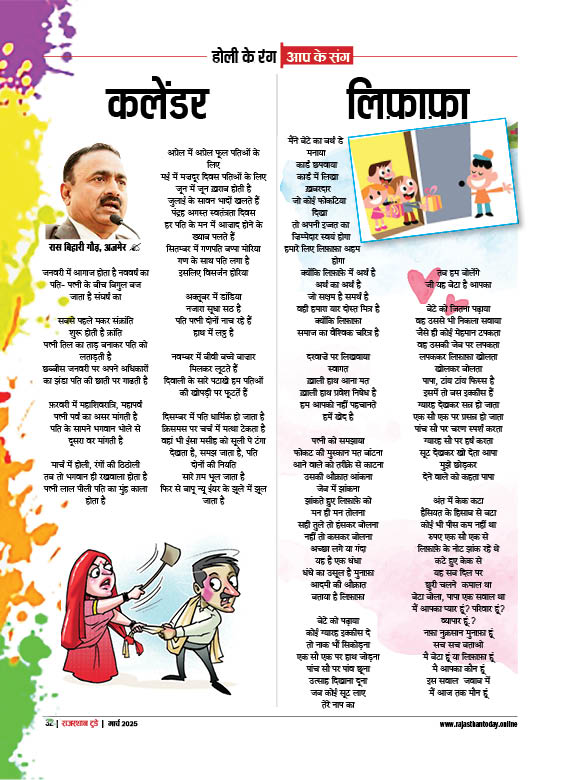 होली के रंग आप के संग
कलेंडर
रास बिहारी गौड़, अजमेर
जनवरी में आगाज होता है नववर्ष का
पति- पत्नी के बीच बिगुल बज
जाता है संघर्ष का
सबसे पहले मकर संक्रांति
शुरू होती है क्रांति
पत्नी तिल का ताड़ बनाकर पति को
लताड़ती है
छब्बीस जनवरी पर अपने अधिकारों
का झंडा पति की छाती पर गाड़ती है
फ़रवरी में महाशिवरात्रि, महापर्व
पत्नी पर्व का असर मांगती है
पति के सामने भगवान भोले से
दूसरा वर मांगती है
मार्च में होली, रंगों की ठिठोली
तब तो भगवान ही रखवाला होता है
पत्नी लाल पीली पति का मुंह काला
होता है
अप्रेल में अप्रेल फूल पतिओं के
लिए
मई में मजदूर दिवस पतिओं के लिए
जून में जून ख़राब होती है
जुलाई के सावन भादों खलते हैं
पंद्रह अगस्त स्वतंत्रता दिवस
हर पति के मन में आजाद होने के
ख्वाब पलते हैं
सितम्बर में गणपति बप्पा मोरिया
गण के साथ पति लगा है
इसलिए विसर्जन होरिया
अक्तूबर में डांडिया
नजारा सूधा सठ है
पति पत्नी दोनों नाच रहे हैं
हाथ में लट्ठ है
नवम्बर में बीवी बच्चे बाजार
मिलकर लूटते हैं
दिवाली के सारे पटाखे हम पतिओं
की खोपड़ी पर फूटतें हैं
दिसम्बर में पति धार्मिक हो जाता है
क्रिसमस पर चर्च में मत्था टेकता है
वहां भी ईसा मसीह को सूली पे टंगा
देखता है, समझ जाता है, पति
दोनों की नियति
सारे ग़म भूल जाता है
फिर से बापू न्यू ईयर के झूले में झूल
जाता है
लिफ़ाफ़ा
मैंने बेटे का बर्थ डे
मनाया
कार्ड छपवाया
कार्ड में लिखा
ख़बरदार
जो कोई फोकटिया
दिखा
तो अपनी इज्जत का
जिम्मेदार स्वयं होगा
हमारे लिए लिफ़ाफ़ा अहम
होगा
क्योंकि लिफ़ाफ़े में अर्थ है
अर्थ का अर्थ है
जो सक्षम है समर्थ है
वही हमारा यार दोस्त मित्र है
क्योंकि लिफ़ाफ़ा
समाज का वैश्विक चरित्र है
दरवाजे पर लिखवाया
स्वागत
ख़ाली हाथ आना मत
ख़ाली हाथ प्रवेश निषेध है
हम आपको नहीं पहचानते
हमें खेद है
पत्नी को समझाया
फोकट की मुस्कान मत बांटना
आने वाले को तरीक़े से काटना
उसकी औक़ात आंकना
जेब में झांकना
झांकते हुए लिफ़ाफ़े को
मन ही मन तोलना
सही तुले तो हंसकर बोलना
नहीं तो कसकर बोलना
अच्छा लगे या गंदा
यह है एक धंधा
धंधे का उसूल है मुनाफ़ा
आदमी की औक़ात
बताया है लिफ़ाफ़ा
बेटे को पढ़ाया
कोई ग्यारह इक्कीस दे
तो नाक भौं सिकोड़ना
एक सौ एक पर हाथ जोड़ना
पांच सौ पर पांव छूना
उत्साह दिखाना दूना
जब कोई सूट लाए
तेरे नाप का
तब हम बोलेंगे
जी यह बेटा है आपका
बेटे को जितना पढ़ाया
वह उससे भी निकला सवाया
जैसे ही कोई मेहमान टपकता
वह उसकी जेब पर लपकता
लपककर लिफ़ाफ़ा खोलता
खोलकर बोलता
पापा, टांय टांय फिस्स है
इसमें तो बस इक्कीस हैं
ग्यारह देखकर सन्न हो जाता
एक सौ एक पर प्रसन्न हो जाता
पांच सौ पर चरण स्पर्श करता
ग्यारह सौ पर हर्ष करता
सूट देखकर खो देता आपा
मुझे छोड़कर
देने वाले को कहता पापा
अंत में केक कटा
हैसियत के हिसाब से बंटा
कोई भी पीस कम नहीं था
रुपए एक सौ एक से
लिफ़ाफ़े के नोट झांक रहे थे
कटे हुए केक से
यह सब दिल पर
छुरी चलने कमाल था
बेटा बोला, पापा एक सवाल था
मैं आपका प्यार हूं? परिवार हूं?
व्यापार हूं.?
नफ़ा नुक़सान मुनाफ़ा हूं
सच सच बताओ
मैं बेटा हूं या लिफ़ाफ़ा हूं
मैं आपका कौन हूं
इस सवाल जवाब में
मैं आज तक मौन हूं
32 | राजस्थान टुडे | मार्च 2025
www.rajasthantoday.online